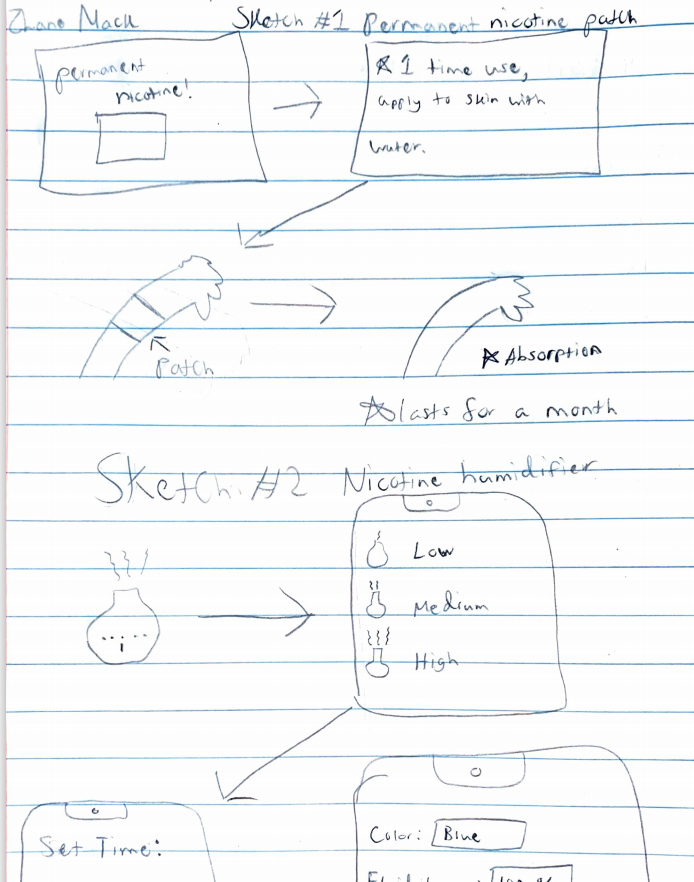 Zhane Mack
Sketch #1 Permanent nicotine patch
permanent
nicotine!
1 time use,
apply to skin with
water.
Patch
Absorption
lasts for a month
Sketch #2 Nicotine humidifier
Low
Medium
High
Set Time:
Color: Blue